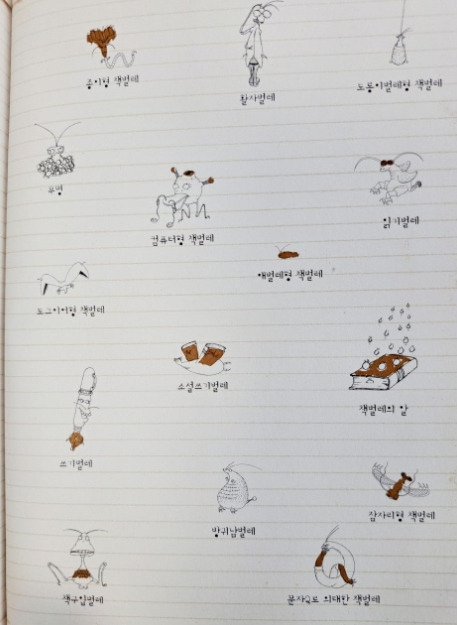 종이형 책벌레
활자벌레
도롱이벌레형 책벌레
무명
컴퓨터형 책벌레
읽기벌레
애벌레형 책벌레
소설쓰기벌레
책벌레의 알
쓰기벌레
방귀남벌레
잠자리형 책벌레
책구입벌레
문자Q로 의태한 책벌레